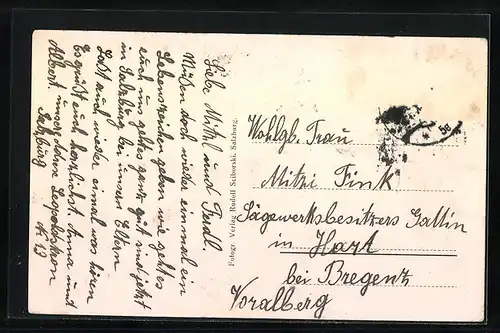 Liebe Mitzl und Ferdl.
Müßen doch wieder einmal ein
Lebenszeichen geben wie gehts
euch uns gehts ganz gut sind jetzt
in Salzburg bei unsere Eltern
Laßt auch wieder einmal was hören
Es grüßt euch herzlichst. Anna und
Albert. unsere Adresse Leopoldskron
Salzburg № 13
Photogr. Verlag Rudolf Sciborski, Salzburg.
Wohlgb. Frau
Mitzi Fink
Sägewerksbesitzers Gattin
in Hart
bei Bregenz
Voralberg